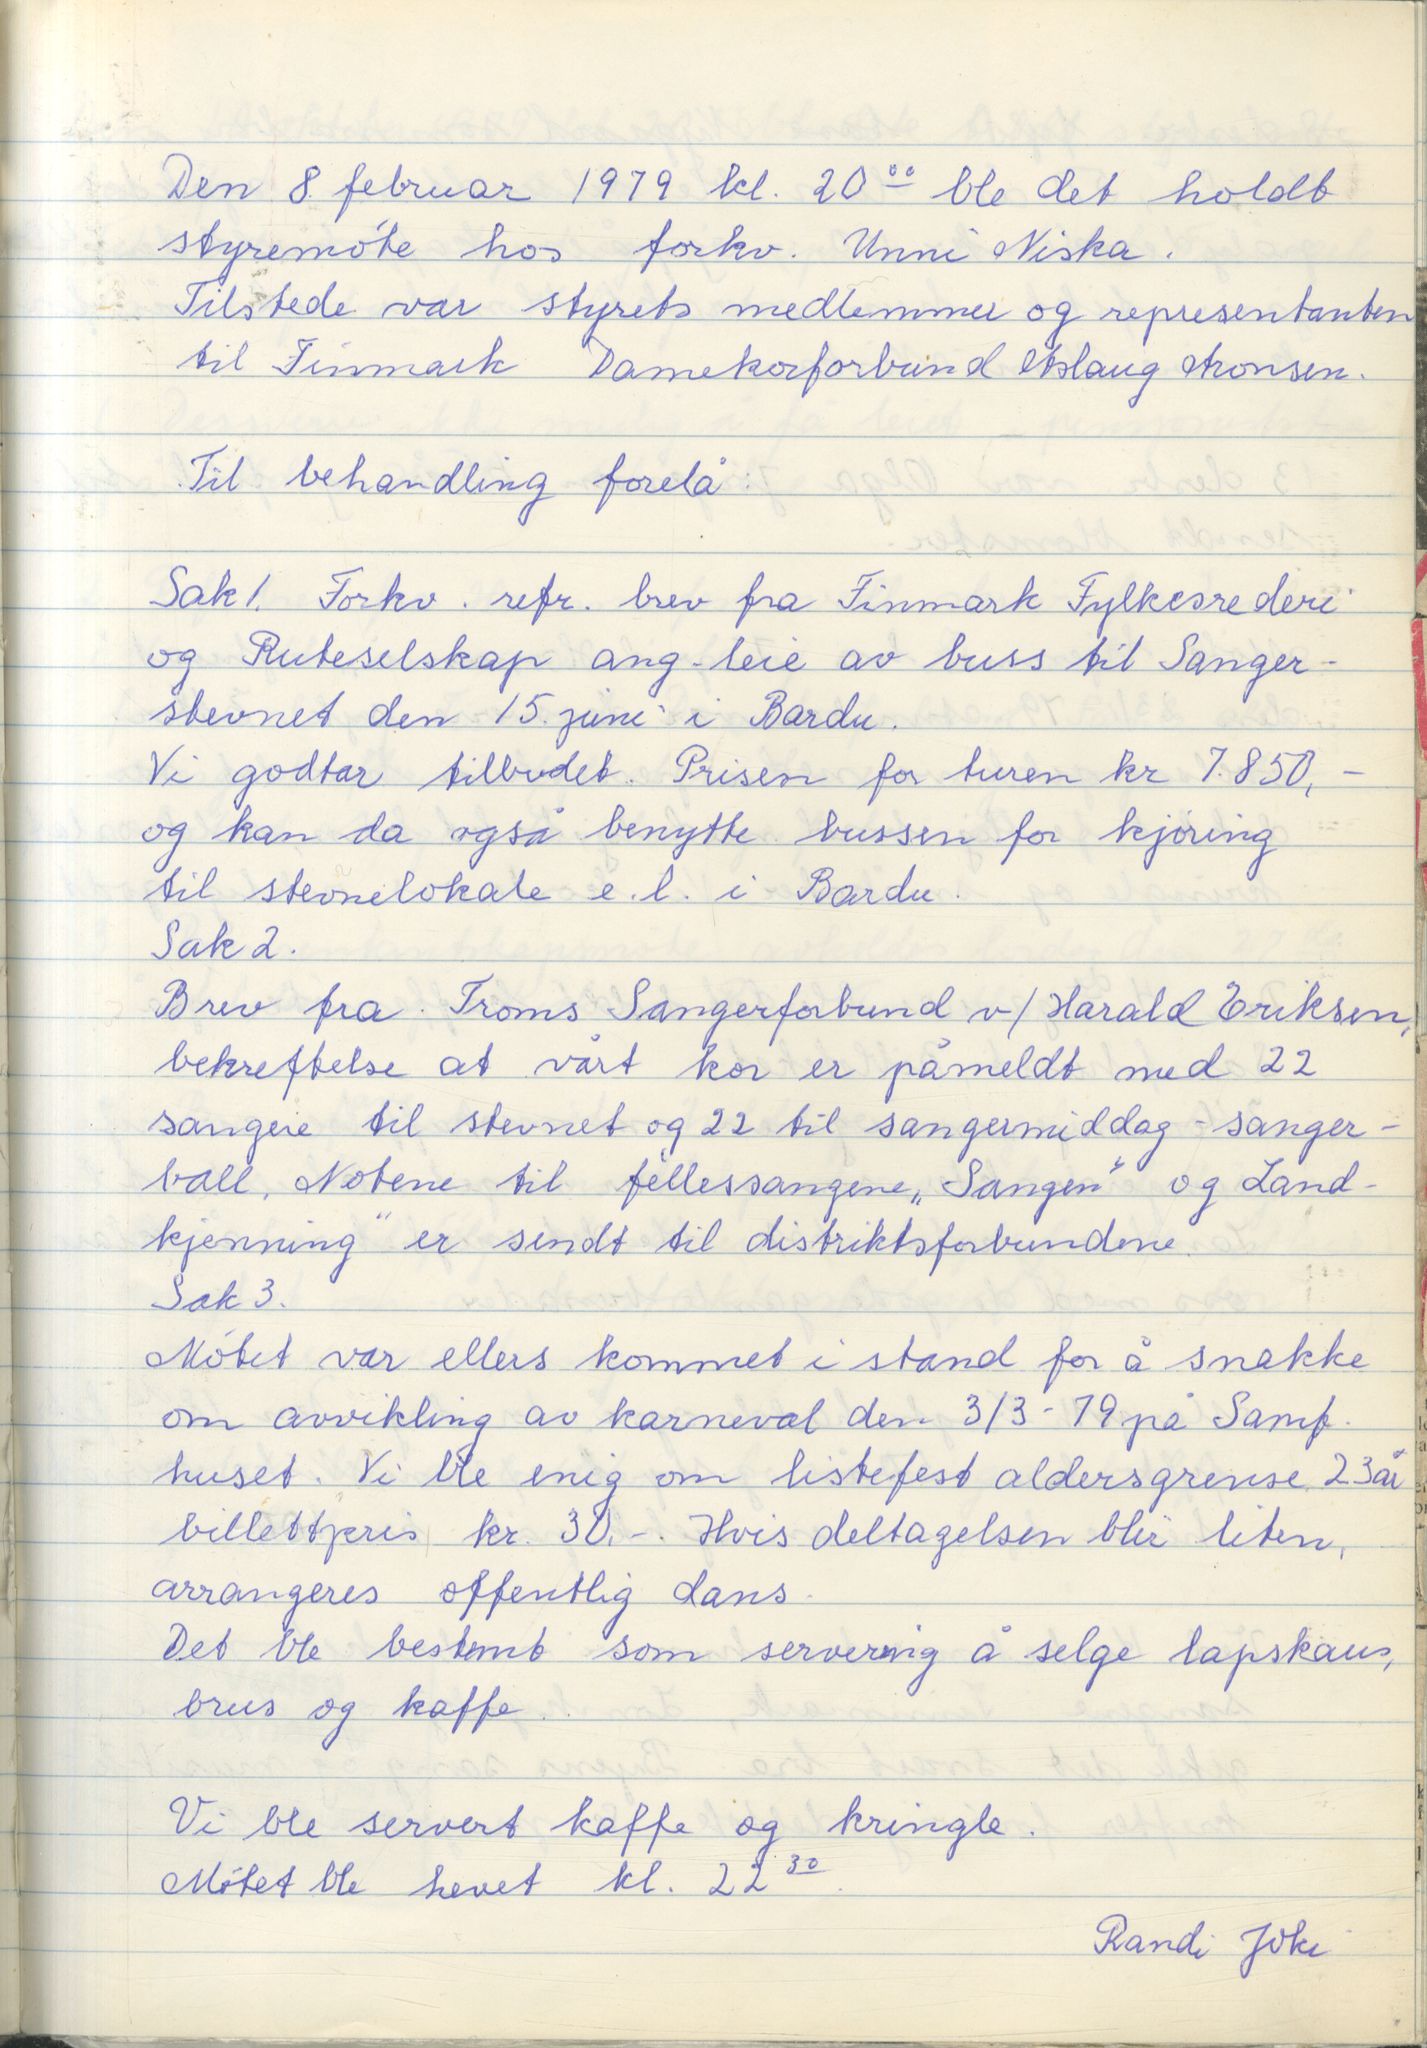 Den 8. februar 1979 kl. 20⁰⁰ ble det holdt
styremöte hos forkv. Unni Niska.
Tilstede var styrets medlemmer og representanten
til Finmark Damekorforbund Aslaug Aronsen.
Til behandling forelå:
Sak 1. Forkv. refr. brev fra Finmark Fylkesrederi
og Ruteselskap ang. leie av buss til Sanger-
stevnet den 15. juni i Bardu.
Vi godtar tilbudet. Prisen for turen kr 7.850,-
og kan da også benytte bussen for kjöring
til stevnelokale e.l. i Bardu.
Sak 2.
Brev fra Troms Sangerforbund v/ Harald Eriksen,
bekreftelse at vårt kor er påmeldt med 22
sangere til stevnet og 22 til sangermiddag - sanger-
ball. Notene til fellessangene „Sangen" og Land-
kjenning" er sendt til distriktsforbundene.
Sak 3.
Mötet var ellers kommet i stand for å snakke
om avvikling av karneval den 3/3-79 på Samf.
huset. Vi ble enig om listefest aldersgrense 23 år
billettpris kr. 30,-. Hvis deltagelsen blir liten,
arrangeres offentlig dans.
Det ble bestemt som servering å selge lapskaus,
brus og kaffe.
Vi ble servert kaffe og kringle.
Mötet ble hevet kl. 22³⁰.
Randi Joki